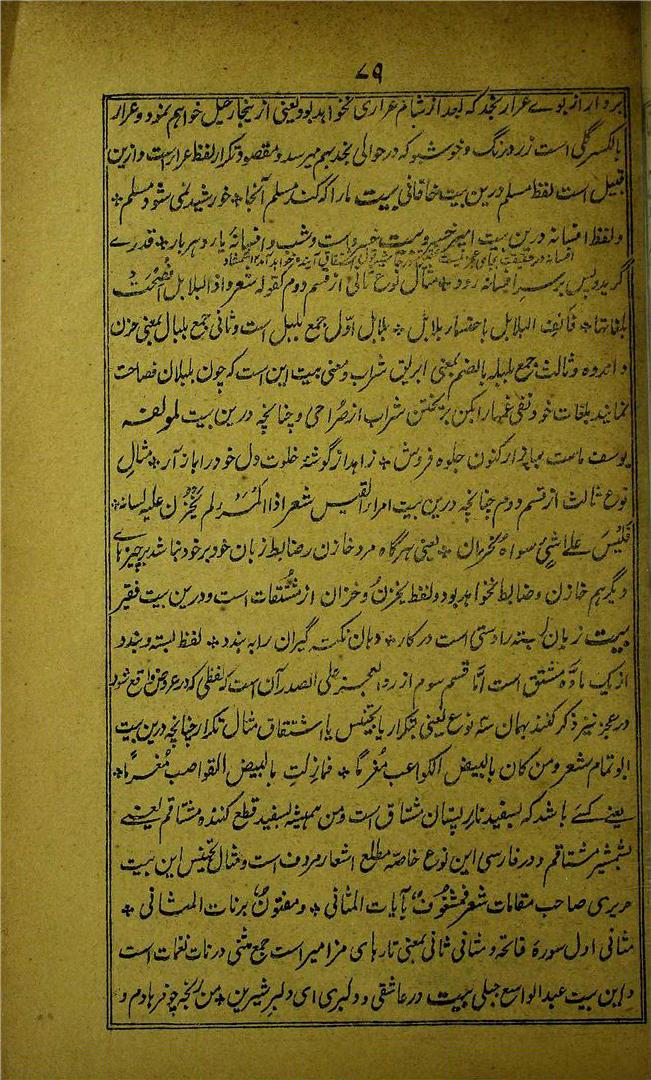 ۷۹
بردار از بوے عرار نجد که بعد از شام عراری نخواهد بود یعنی از ینجا رحیل خواهیم نمود و عرار
بالکسر گلی است زرد رنگ و خوشبو که در حوالی نجد بهم میرسد و مقصود تکرار لفظ عرار است و ازین
قبیل است لفظ مسلم درین بیت خاقانی بیت مارا که کند مسلم آنجا * خورشید نمی شود مسلم *
و لفظ افسانه درین بیت امیر خسرو بیت خسرو است و شب و افسانهٔ یار و هر بار * قدرے
افسانه در حقیقت بجای عجز نیست
گرید و پس بر سر افسانه رود * مثال نوع ثانی از قسم دوم کقوله شعر و اذا البلابل افصحت
بلغاتها * فانف البلابل باحتساء بلابل * بلابل اوّل جمع بلبل است و ثانی جمع بلبال بمعنی حزن
و اندوه و ثالث جمع بلبله بالضم بمعنی ابریق شراب و معنی بیت این است که چون بلبلان فصاحت
نمایند بلغات خود نفی غمها را بکن بریختن شراب از صُراحی و چنانچه درین بیت لمولفه
یوسف ماست ببازار کنون جلوه فروش * زاهد از گوشهٔ خلوت دل خود را باز آر * مثال
نوع ثالث از قسم دوم چنانچه درین بیت امراء القیس شعر اذا المرء لم یخزن علیه لسانه *
فلیس علی شیٔ سواه بخزان * یعنی هرگاه مرد خازن رضا بط زبان خود بر خود نباشد بر چیزهای
دیگر هم خازن و ضابط نخواهد بود و لفظ یخزن و خزان از مشتقات است و درین بیت فقیر
بیت زبان بسته را دستی است در کار * دهان نکته گیران را به بندد * لفظ بسته و بندد
از یک مادّه مشتق است امّا قسم سوم از رد العجز علی الصدر آن است که لفظی که در عروض واقع شود
در عجز نیز ذکر کنند بهمان سه نوع یعنی بتکرار یا بتجنیس یا اشتقاق مثال تکرار چنانچه درین بیت
ابو تمام شعر و من کان بالبیض الکواعب مُغرمًا * فمازلت بالبیض القواضب مُغرمًا *
یعنے کسے باشد که بسفید نار پستان مشتاق است و من همیشه بسفید قطع کننده مشتاقم یعنے
بشمشیر مشتاقم و در فارسی این نوع خاصّه مطلع اشعار مردف است و مثال تجنیس این بیت
حریری صاحب مقامات شعر فمشغوف بآیات المثانی * و مفتون برنات المثانی *
مثانی اول سورهٔ فاتحه و مثانی ثانی بمعنی تارهای مزامیر است جمع مثنی و رنات نغمات است
و این بیت عبدالواسع جبلی بیت در عاشقی و دلبری ای دلبر شیرین * من رنجه چو فرهادم و